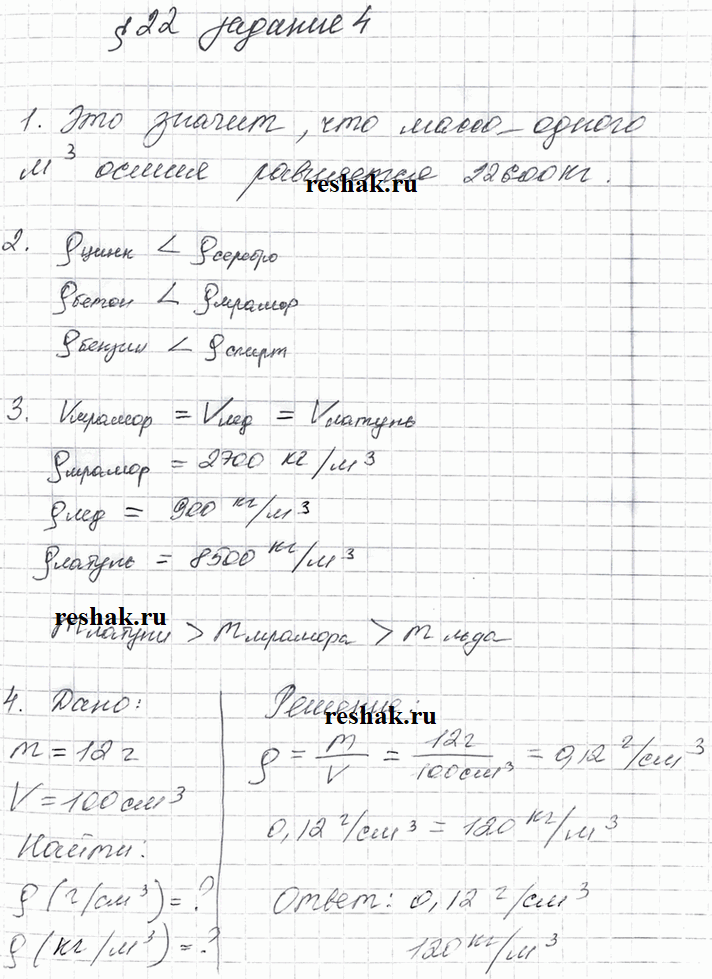 § 22 задание 4
1. Это значит, что масса одного
м³ осмия равняется 22600 кг.
reshak.ru
2. ρцинк < ρсеребро
ρбетон < ρмрамор
ρбензин < ρспирт
3. Vмрамор = Vлед = Vлатунь
ρмрамор = 2700 кг/м³
ρлед = 900 кг/м³
ρлатунь = 8500 кг/м³
reshak.ru
mлатуни > mмрамора > mльда
4. Дано:
m = 12 г
V = 100 см³
Найти:
ρ (г/см³) = ?
ρ (кг/м³) = ?
Решение:
reshak.ru
ρ = m/V = 12г/100см³ = 0,12 г/см³
0,12 г/см³ = 120 кг/м³
Ответ: 0,12 г/см³
120 кг/м³